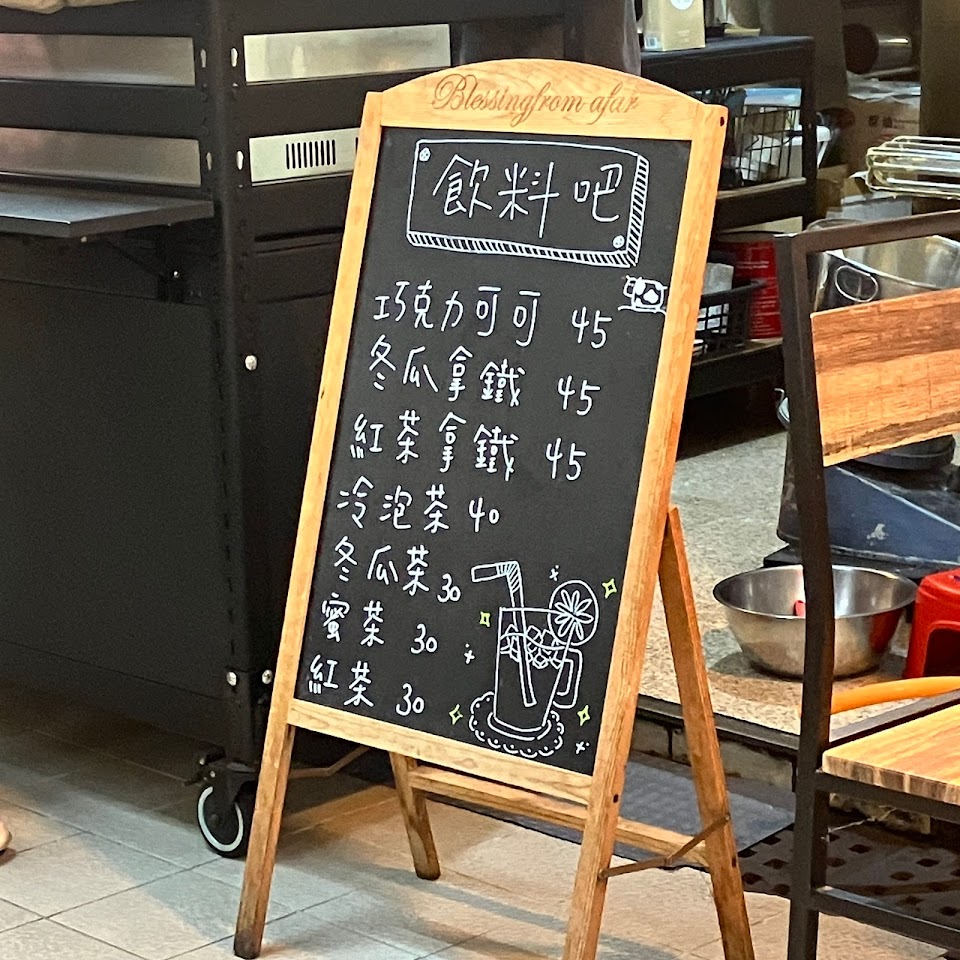 Blessingfrom afar
飲料吧
巧克力可可 45
冬瓜拿鐵 45
紅茶拿鐵 45
冷泡茶 40
冬瓜茶 30
蜜茶 30
紅茶 30